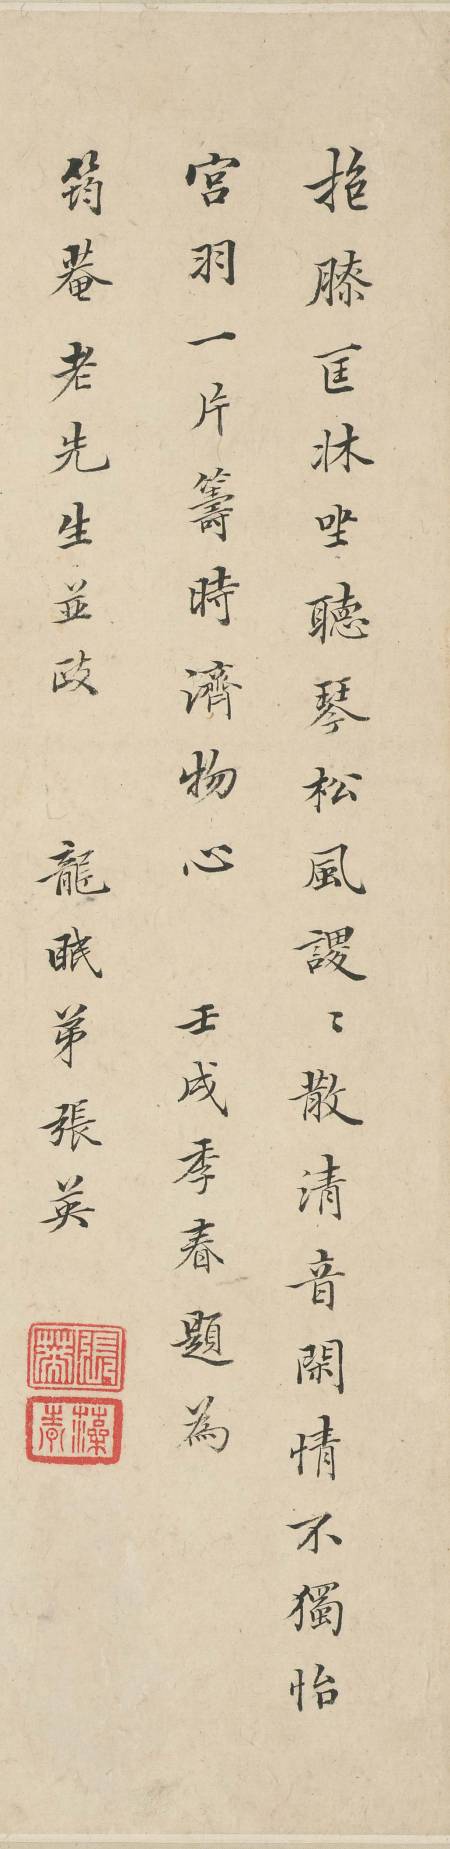 抱膝匡牀坐聽琴松風謖〻散清音閑情不獨怡
宮羽一片籌時濟物心　壬戌季春題為
筠菴老先生並政　龍眠弟張英
張英